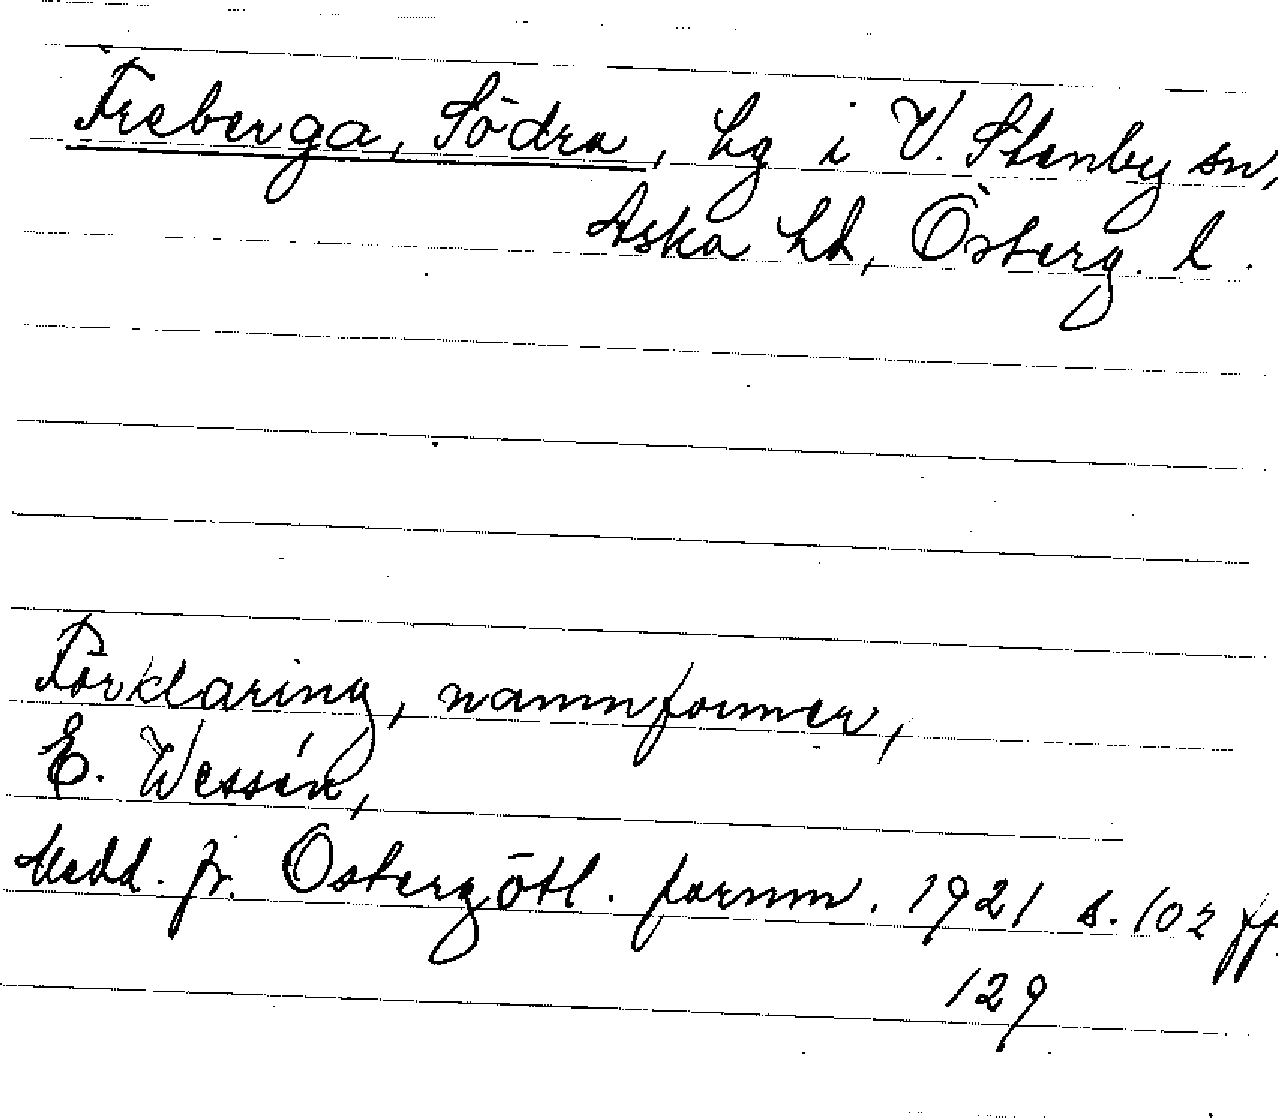 Freberga, Södra, hg i V. Stenby sn,
Aska hd, Österg. l.
Förklaring, namnformer,
E. Wessén,
Medd. fr. Östergötl. fornm. 1921 s. 102 ff.
129